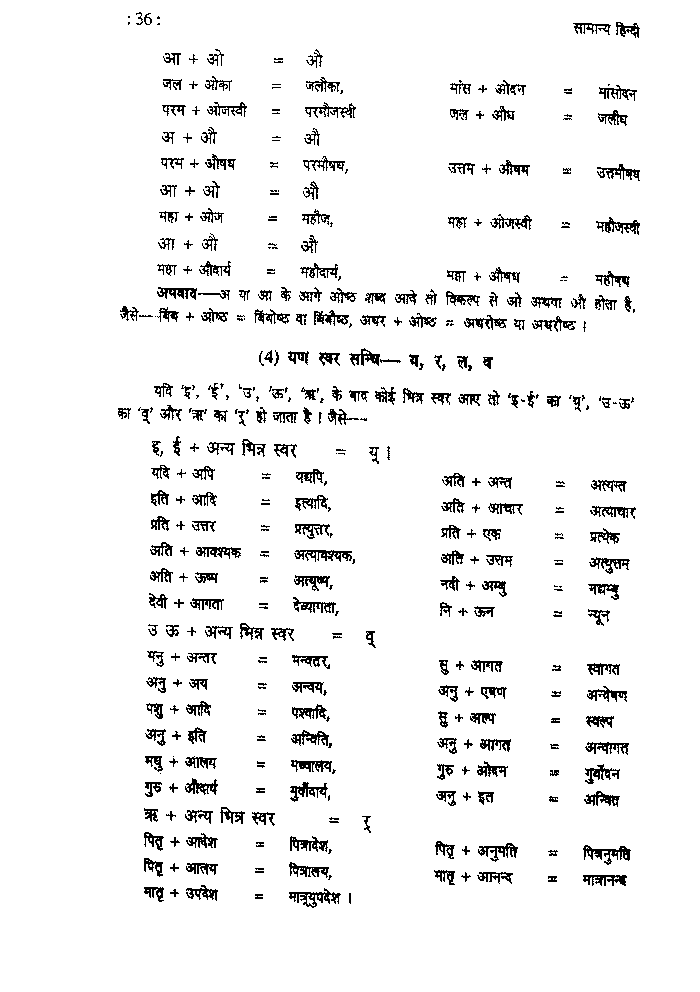 : 36 :
सामान्य हिन्दी
आ + ओ = औ
जल + ओका = जलौका, मांस + ओदन = मांसोदन
परम + ओजस्वी = परमौजस्वी जल + औघ = जलौघ
अ + औ = औ
परम + औषध = परमौषध, उत्तम + औषम = उत्तमौषध
आ + ओ = औ
महा + ओज = महौज, महा + ओजस्वी = महौजस्वी
आ + औ = औ
महा + औदार्य = महौदार्य, महा + औषध = महौषध
अपवाद—अ या आ के आगे ओष्ठ शब्द आवे तो विकल्प से ओ अथवा औ होता है,
जैसे—बिंब + ओष्ठ = बिंबोष्ठ वा बिंबौष्ठ, अधर + ओष्ठ = अधरोष्ठ या अधरौष्ठ ।
(4) यण स्वर सन्धि— य, र, ल, व
यदि 'इ', 'ई', 'उ', 'ऊ', 'ऋ', के बाद कोई भिन्न स्वर आए तो 'इ-ई' का 'य्', 'उ-ऊ'
का 'व्' और 'ऋ' का 'र्' हो जाता है । जैसे—
इ, ई + अन्य भिन्न स्वर = य् ।
यदि + अपि = यद्यपि, अति + अन्त = अत्यन्त
इति + आदि = इत्यादि, अति + आचार = अत्याचार
प्रति + उत्तर = प्रत्युत्तर, प्रति + एक = प्रत्येक
अति + आवश्यक = अत्यावश्यक, अति + उत्तम = अत्युत्तम
अति + ऊष्म = अत्यूष्म, नदी + अम्बु = नद्यम्बु
देवी + आगता = देव्यागता, नि + ऊन = न्यून
उ ऊ + अन्य भिन्न स्वर = व्
मनु + अन्तर = मन्वतर, सु + आगत = स्वागत
अनु + अय = अन्वय, अनु + एषण = अन्वेषण
पशु + आदि = पश्वादि, सु + अल्प = स्वल्प
अनु + इति = अन्विति, अनु + आगत = अन्वागत
मधु + आलय = मध्वालय, गुरु + ओदन = गुर्वोदन
गुरु + औदार्य = गुर्वौदार्य, अनु + इत = अन्वित
ऋ + अन्य भिन्न स्वर = र्
पितृ + आदेश = पित्रादेश, पितृ + अनुमति = पित्रनुमति
पितृ + आलय = पित्रालय, मातृ + आनन्द = मात्रानन्द
मातृ + उपदेश = मात्र्युपदेश ।